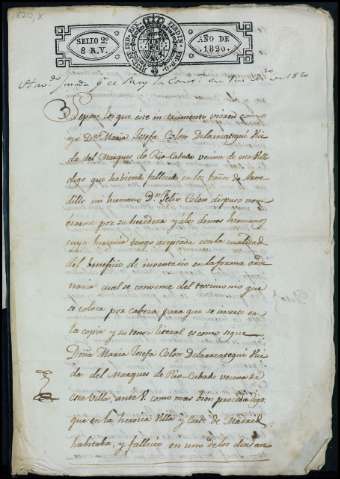 SELLO 2º
8 R.V.
AÑO DE
1820.
Sepase los que este instrumento vieren como
yo Dª Maria Josefa Colon Delarreategui Viu
da del Marques de Rio-Cabado vecina de esta Villa
digo que habiendo fallecido en los baños de
mi hermano Dn Felix Colon dispuso nom
brarme por su heredera y a los demas hermanos
cuya herencia tengo aceptada con la cualidad
del beneficio de inventario en la forma ordi
naria cual se convence del testimonio que
se coloca por cabeza para que se inserte en
la copia y su tenor literal es como sigue
Doña Maria Josefa Colon Delarreategui Viu
da del Marques de Rio-Cabado vecina de
esta Villa ante V. como mas bien proceda digo
que en la heroica Villa y Corte de Madrid
habitaba, y fallecio en uno de los dias